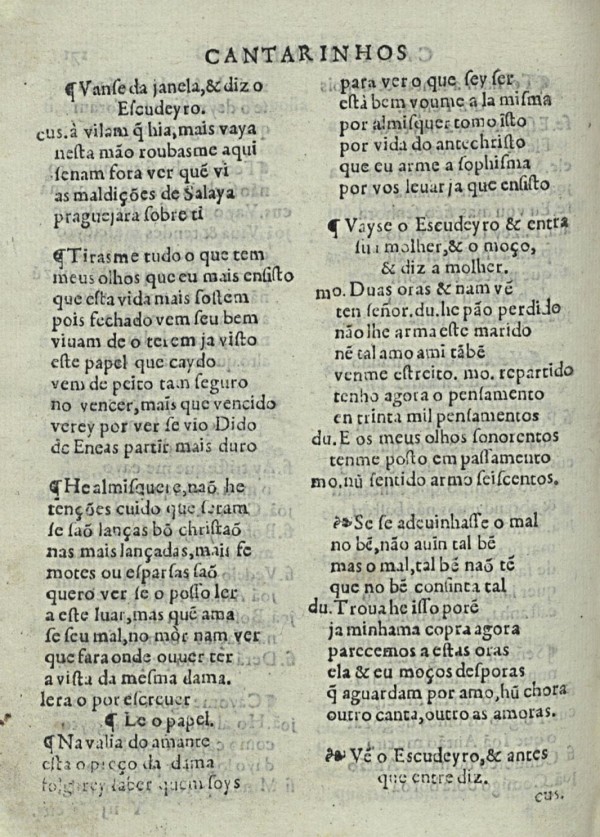 CANTARINHOS
¶ Vanse da janela, & diz o
Escudeyro.
cus. à vilam q̃ hia, mais vaya
nesta mão roubasme aqui
senam fora ver quẽ vi
as maldições de Salaya
praguejara sobre ti
¶ Tirasme tudo o que tem
meus olhos que eu mais ensisto
que esta vida mais sostem
pois fechado vem seu bem
viuam de o terem ja visto
este papel que caydo
vem de peito tam seguro
no vencer, mais que vencido
verey por ver se vio Dido
de Eneas partir mais duro
¶ He almisquere, naõ he
tenções cuido que seram
se saõ lanças bõ christaõ
nas mais lançadas, mais fe
motes ou esparsas saõ
quero ver se o posso ler
a este luar, mas quẽ ama
se seu mal, no mòr nam ver
que fara onde ouuer ter
a vista da mesma dama.
lera o por escreuer
¶ Le o papel.
¶ Na valia do amante
esta o preço da dama
folgarey saber quem soys
para ver o que sey ser
està bem voume a la misma
por almisquer tomo isto
por vida do antechristo
que eu arme a sophisma
por vos leuar ja que ensisto
¶ Vayse o Escudeyro & entra
sua molher, & o moço,
& diz a molher.
mo. Duas oras & nam vẽ
ten señor. du. he pão perdido
não lhe arma este marido
nẽ tal amo ami tãbẽ
venme estreito. mo. repartido
tenho agora o pensamento
en trinta mil pensamentos
du. E os meus olhos sonorentos
tenme posto em passamento
mo. nũ sentido armo seiscentos.
❧ Se se adeuinhasse o mal
no bẽ, não auin tal bẽ
mas o mal, tal bẽ naõ tẽ
que no bẽ consinta tal
du. Troua he isso porẽ
ja minhama copra agora
parecemos a estas oras
ela & eu moços desporas
q̃ aguardam por amo, hũ chora
outro canta, outro as amoras.
❧ Vẽ o Escudeyro, & antes
que entre diz.
cus.